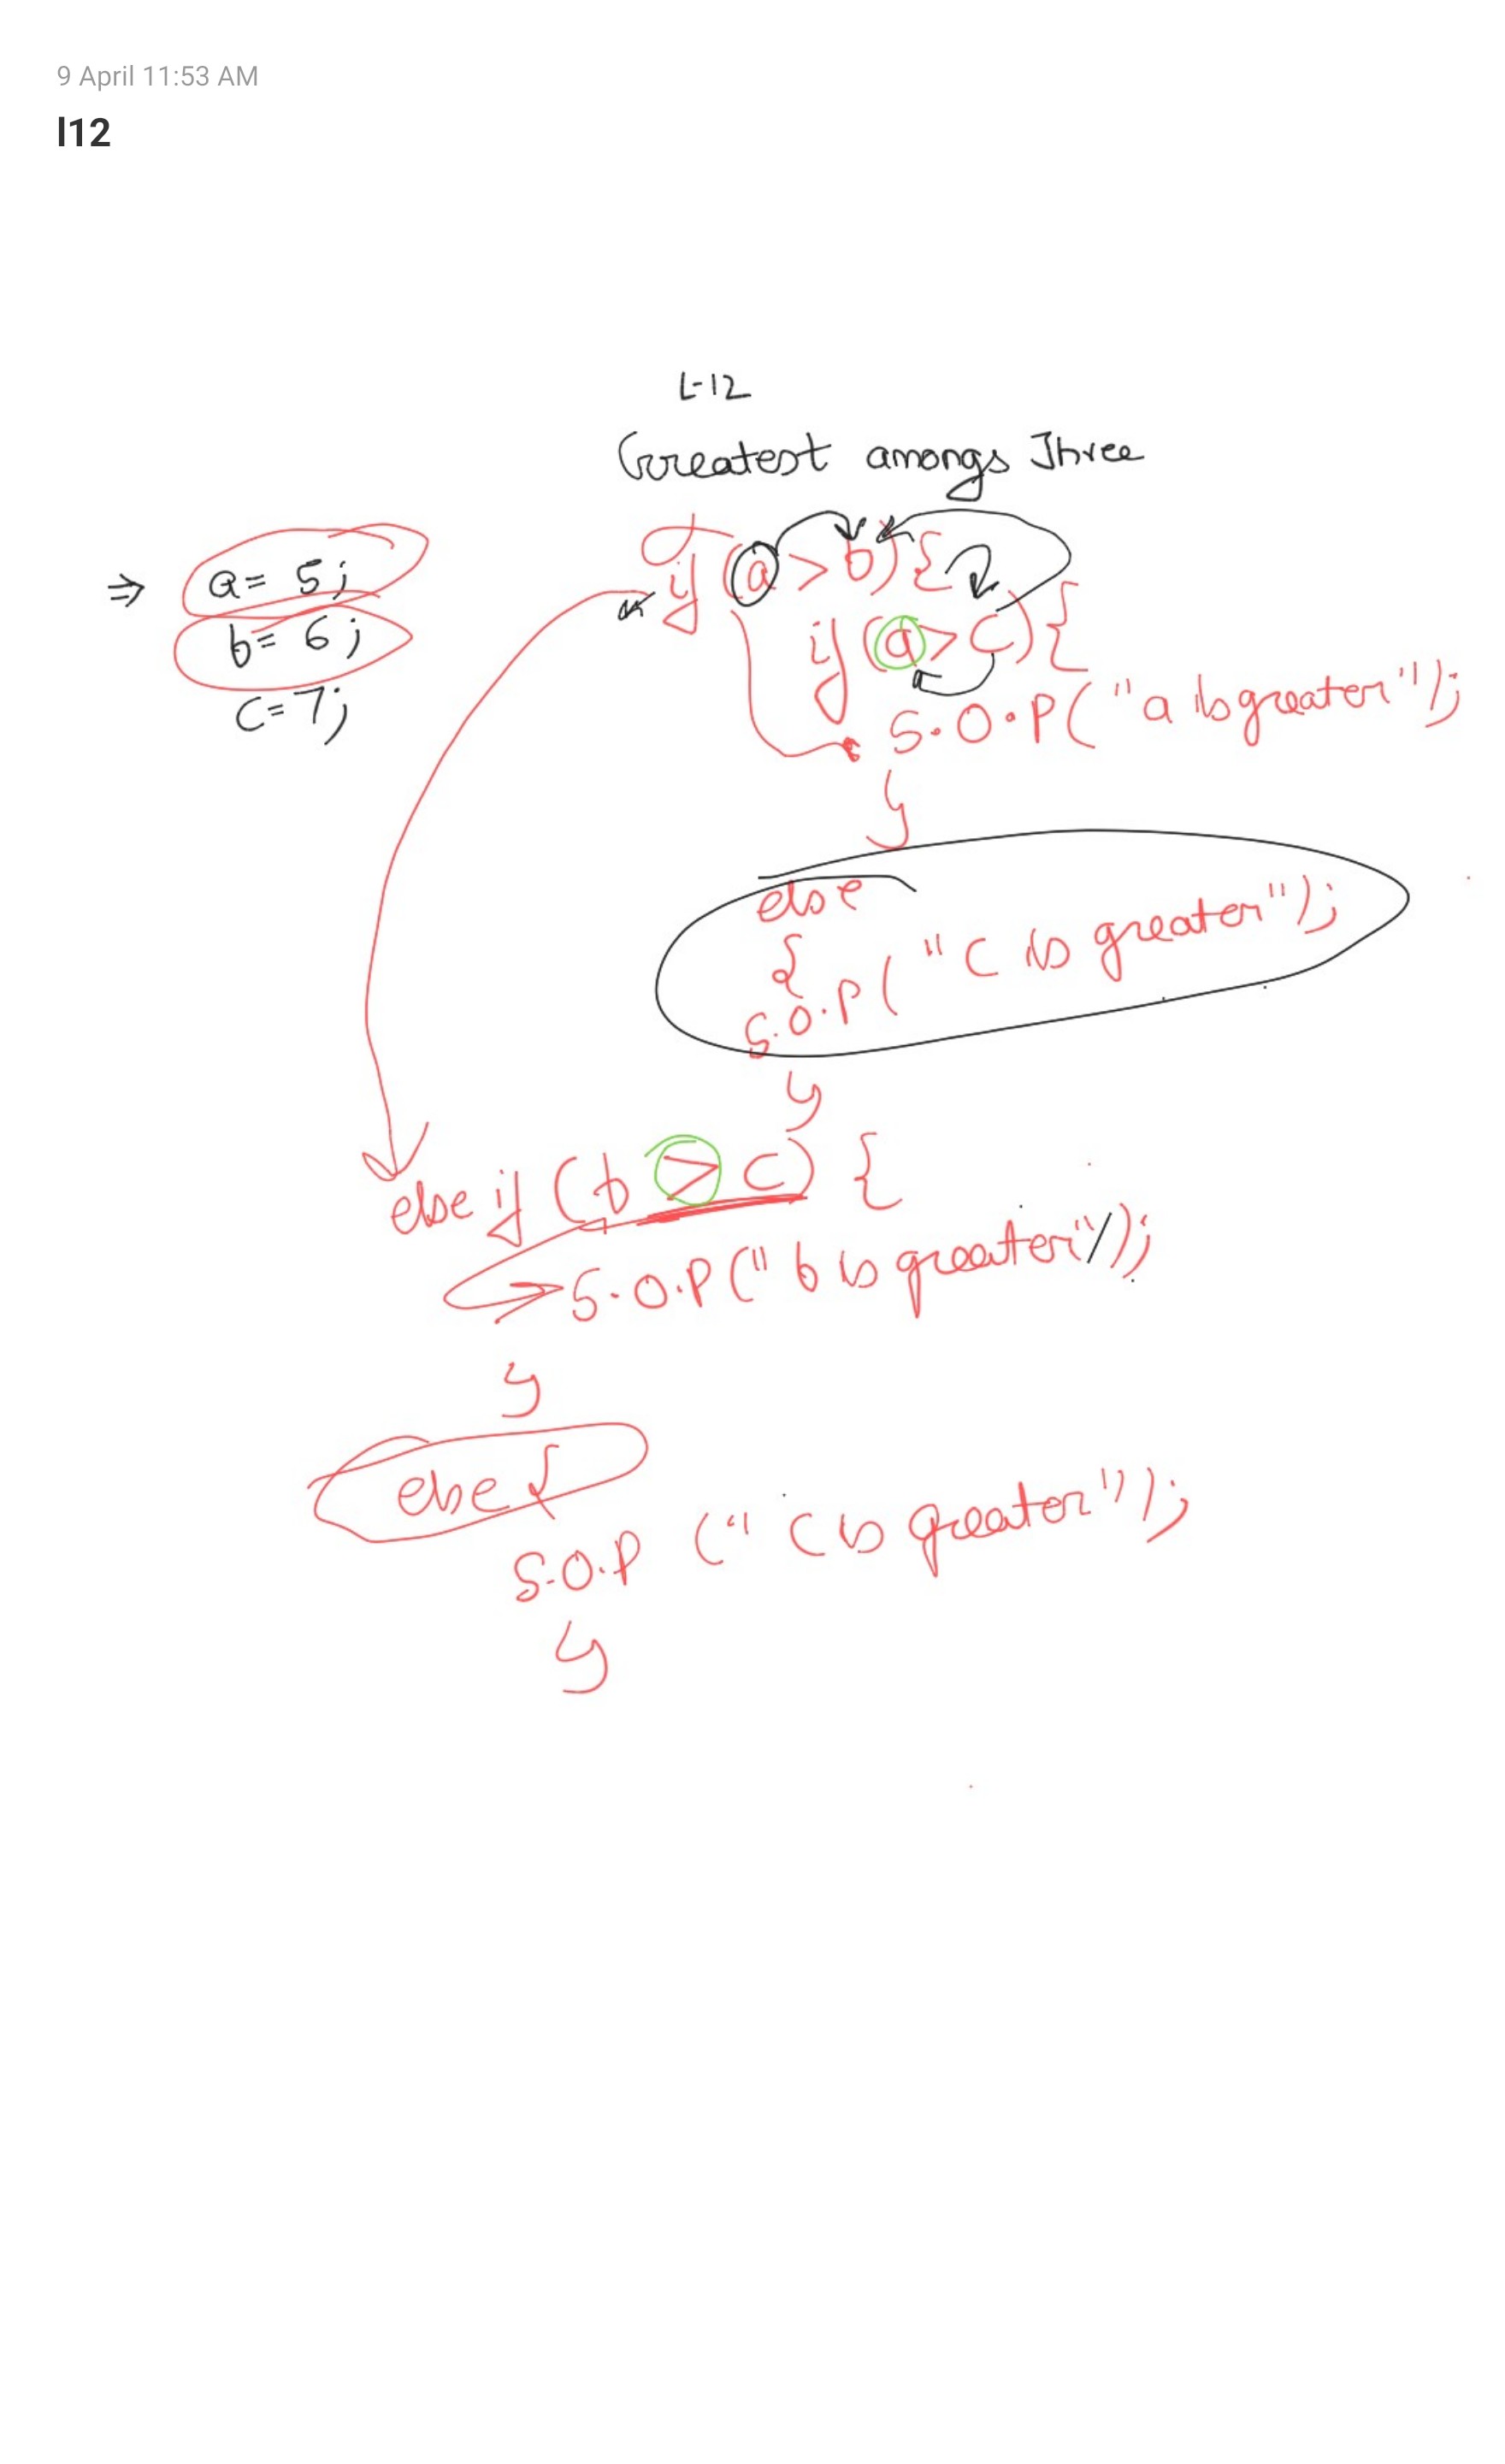 9 April 11:53 AM
l12
L-12
Greatest amongs Three
a = 5;
b = 6;
c = 7;
if (a > b) {
if (a > c) {
S.O.P("a is greater");
}
else
{
S.O.P("c is greater");
}
else if (b > c) {
S.O.P("b is greater");
}
else {
S.O.P("c is greater");
}